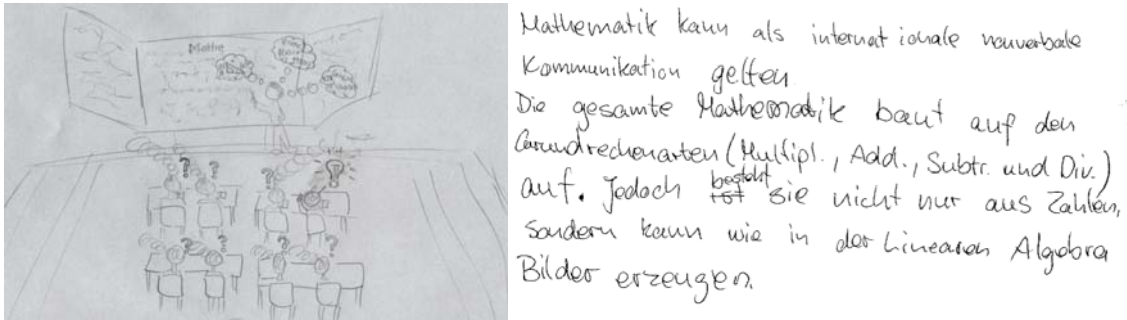 Mathe
? ? ? ? ? ? ? ?
Mathematik kann als international nonverbale
Kommunikation gelten
Die gesamte Mathematik baut auf den
Grundrechenarten (Multipl., Add., Subtr. und Div.)
auf. Jedoch besteht sie nicht nur aus Zahlen,
sondern kann wie in der Linearen Algebra
Bilder erzeugen.